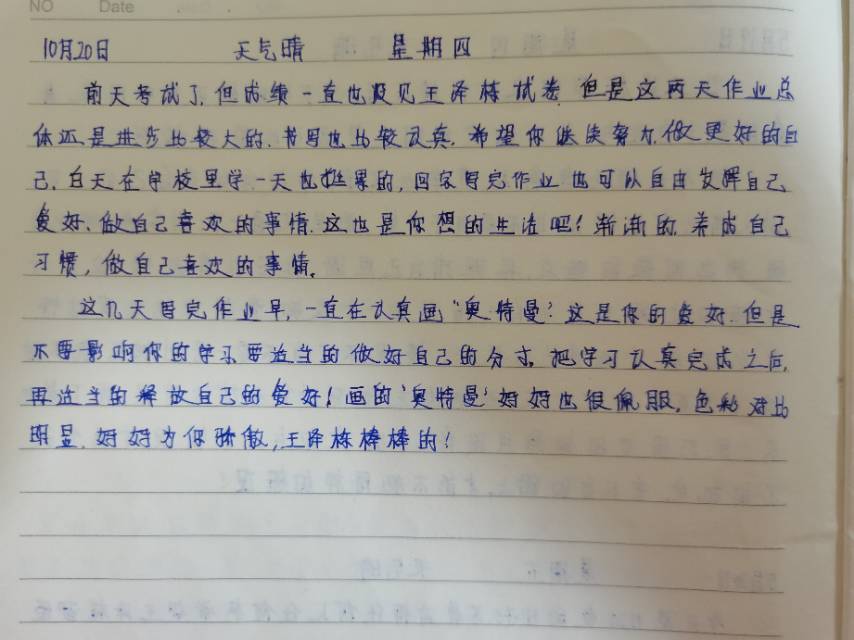 NO Date
10月20日 天气晴 星期四
前天考试了,但成绩一直也没见王泽栋试卷.但是这两天作业总
体还是进步比较大的.书写也比较认真.希望你继续努力.做更好的自
己.白天在学校里学一天也挺累的,回家写完作业也可以自由发挥自己
爱好、做自己喜欢的事情.这也是你想的生活吧!渐渐的.养成自己
习惯,做自己喜欢的事情。
这几天写完作业早,一直在认真画"奥特曼?这是你的爱好.但是
不要影响你的学习.要适当的做好自己的分寸.把学习认真完成之后,
再适当的释放自己的爱好!画的'奥特曼'妈妈也很佩服,色彩对比
明显.妈妈为你骄傲,王泽栋棒棒的!